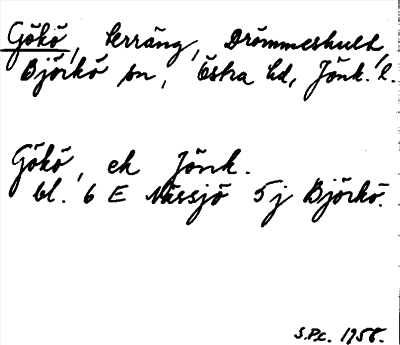 Gökö, terräng, Drömmeshult,
Björkö sn, Östra hd, Jönk. l.
Gökö, ek Jönk.
bl. 6 E Nässjö 5j Björkö.
S.Pc. 1958.